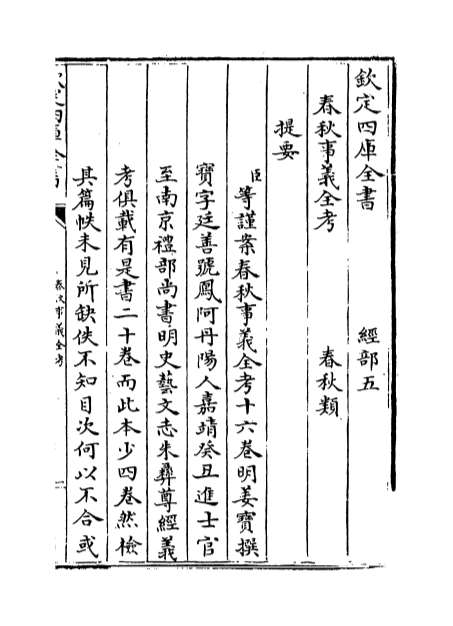 欽定四庫全書　經部五
春秋事義全考　春秋類
提要
臣等謹案春秋事義全考十六卷明姜寶撰
寶字廷善號鳳阿丹陽人嘉靖癸丑進士官
至南京禮部尚書明史藝文志朱彝尊經義
考俱載有是書二十卷而此本少四卷然檢
其篇帙未見所缺佚不知目次何以不合或
欽定四庫全書
春秋事義全考
一